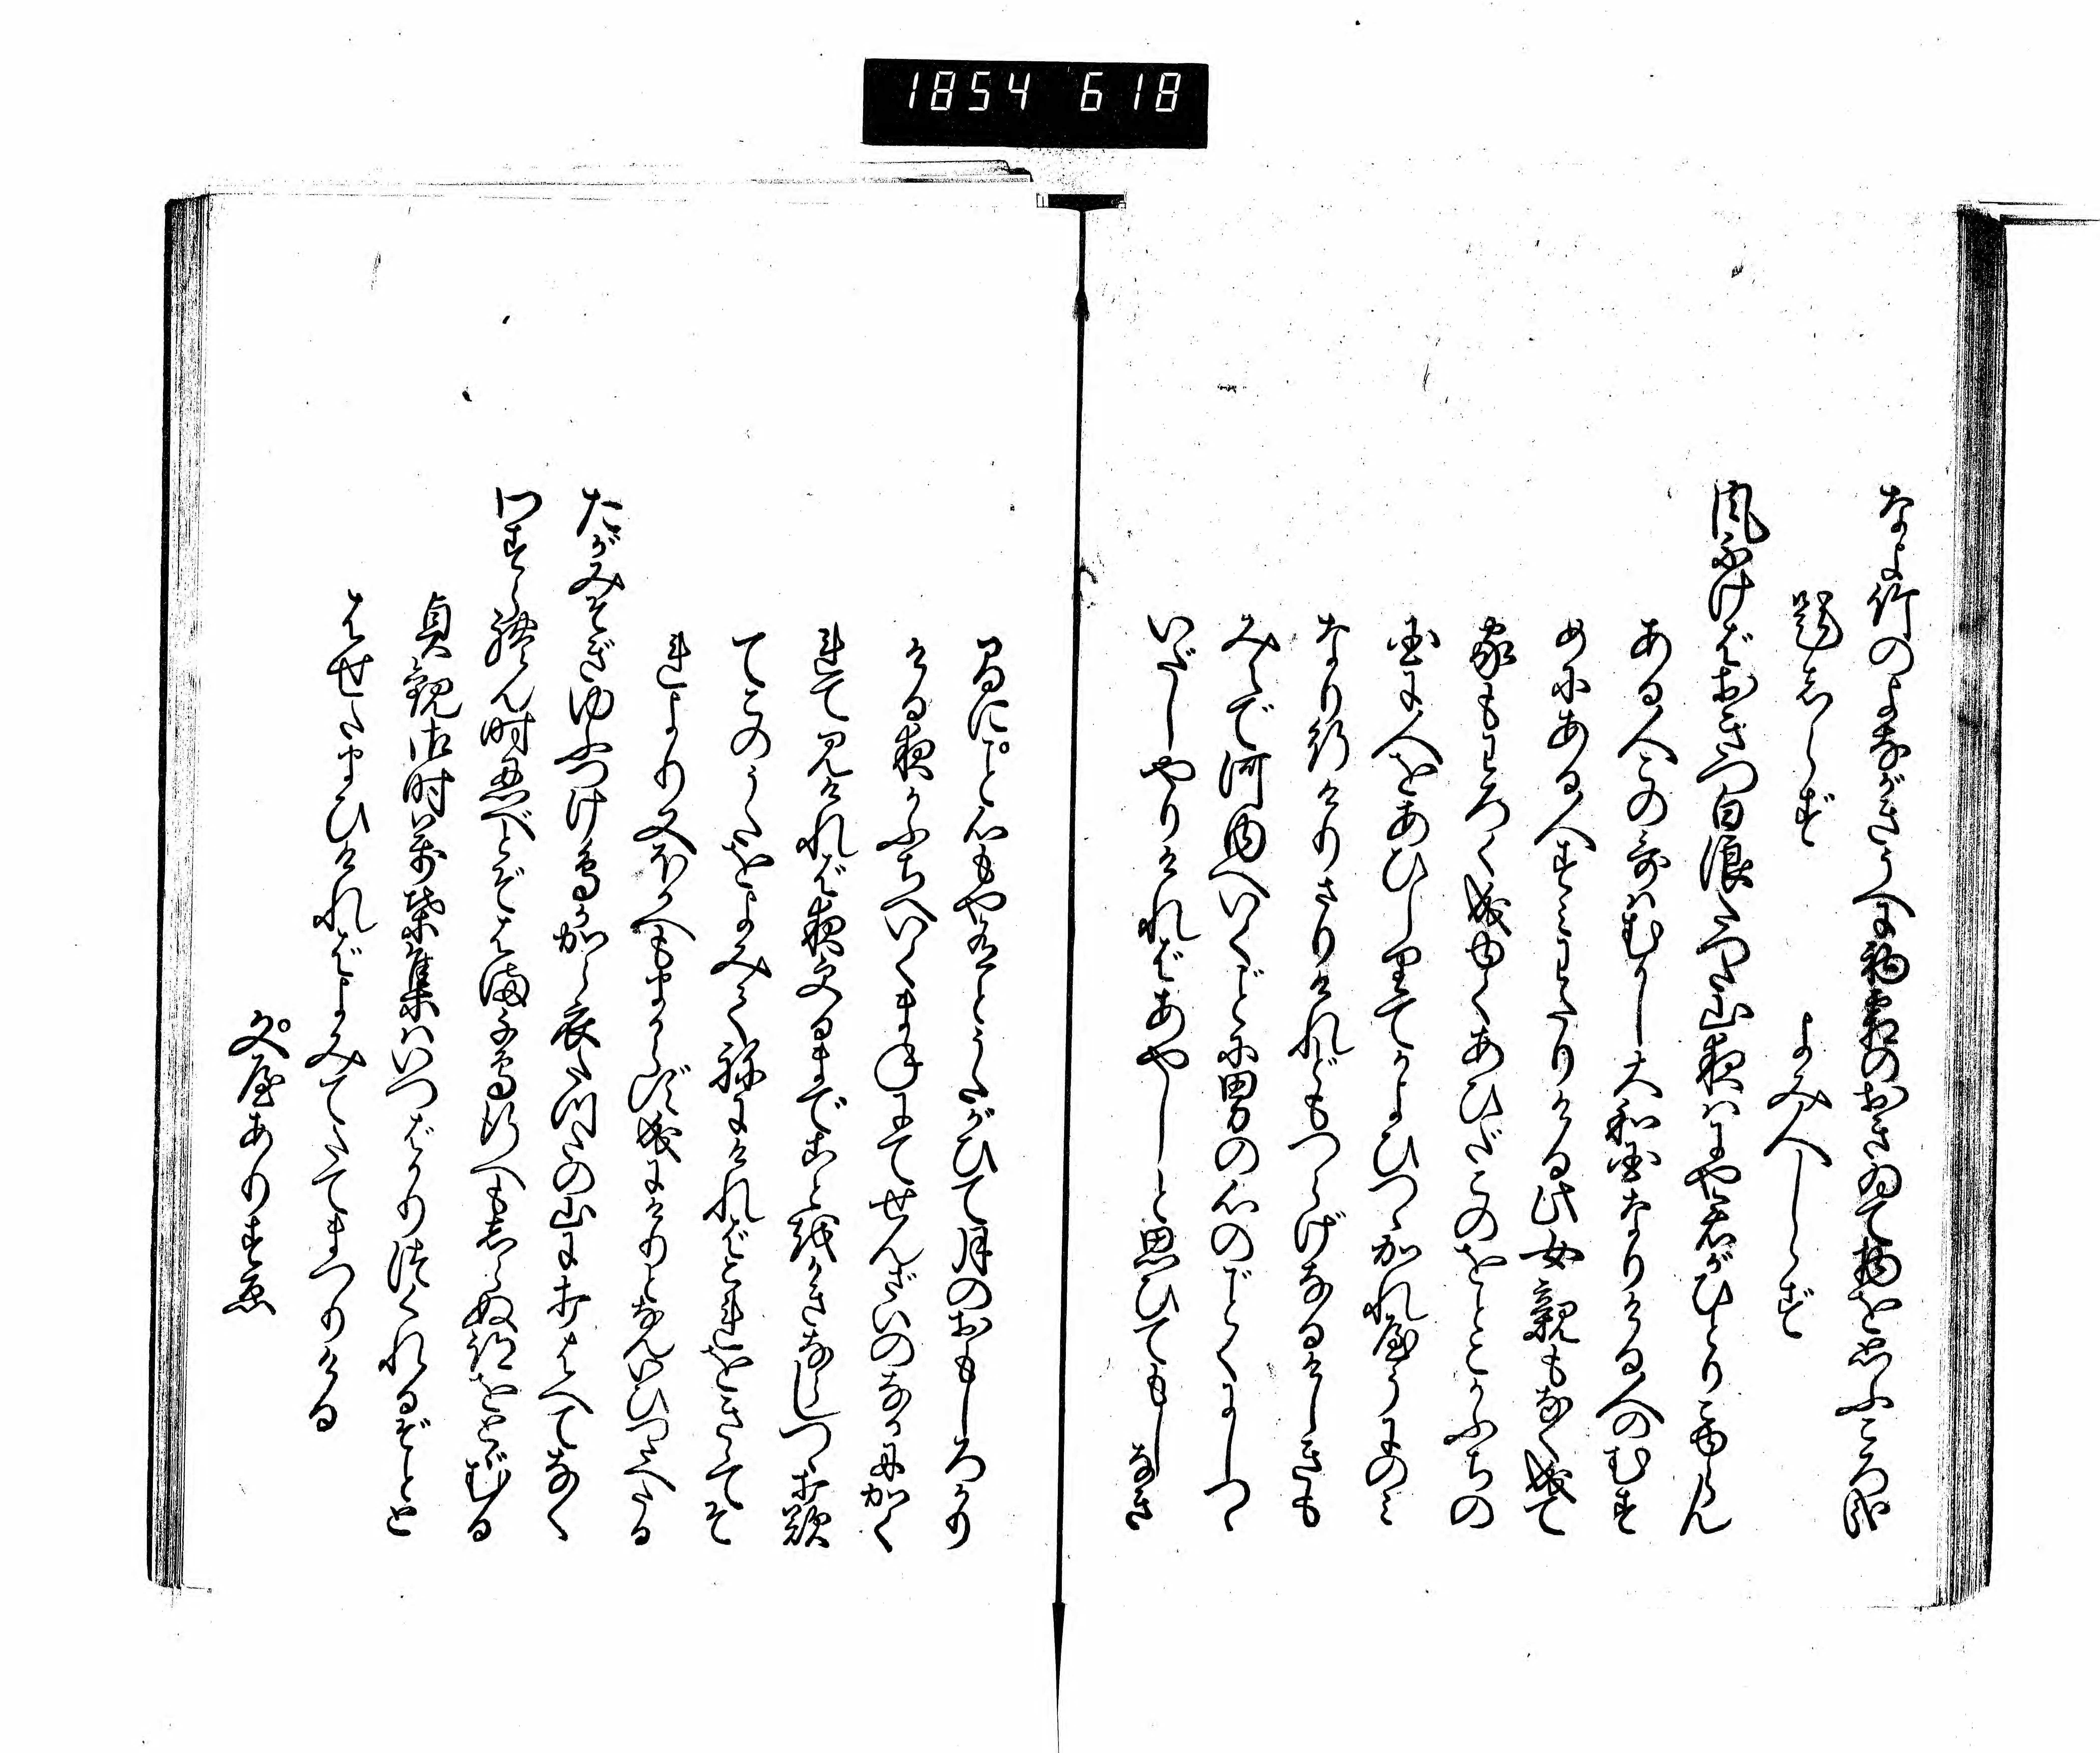 1854 618
なよ竹のよながきうへに初霜のおきゐて物を思ふころ哉
題しらず
よみ人しらず
風ふけばおきつ白浪たつた山夜はにや君がひとりこゆらん
ある人この哥はむかし大和国なりける人のむす
めにある人すみわたりける此女親もなく成て
家もわろく成ゆくあひだこのをとこかふちの
国に人をあひしりてかよひつゝかれやうにのみ
なり行けりさりけれどもつらげなるけしきも
みえで河内へいくごとに男の心のごとくにしつゝ
いだしやりければあやしと思ひてもしなき
間にこと心もや有とうたがひて月のおもしろかり
ける夜かふちへいくまねにてせんざいの中にかく
れて見ければ夜ふくるまでことをかきならしつゝ打歎
てこのうたをよみてねにければこれをきゝてそ
れより又ほかへもまからず成にけりとなんいひつたへたる
たがみそぎゆふつけ鳥か唐衣たつたの山におりはへてなく
わすられん時忍べとぞはま千鳥行へもしらぬ跡をとゞむる
貞観御時萬葉集はいつばかりつくれるぞとと
はせたまひければよみてたてまつりける
文屋ありすゑ